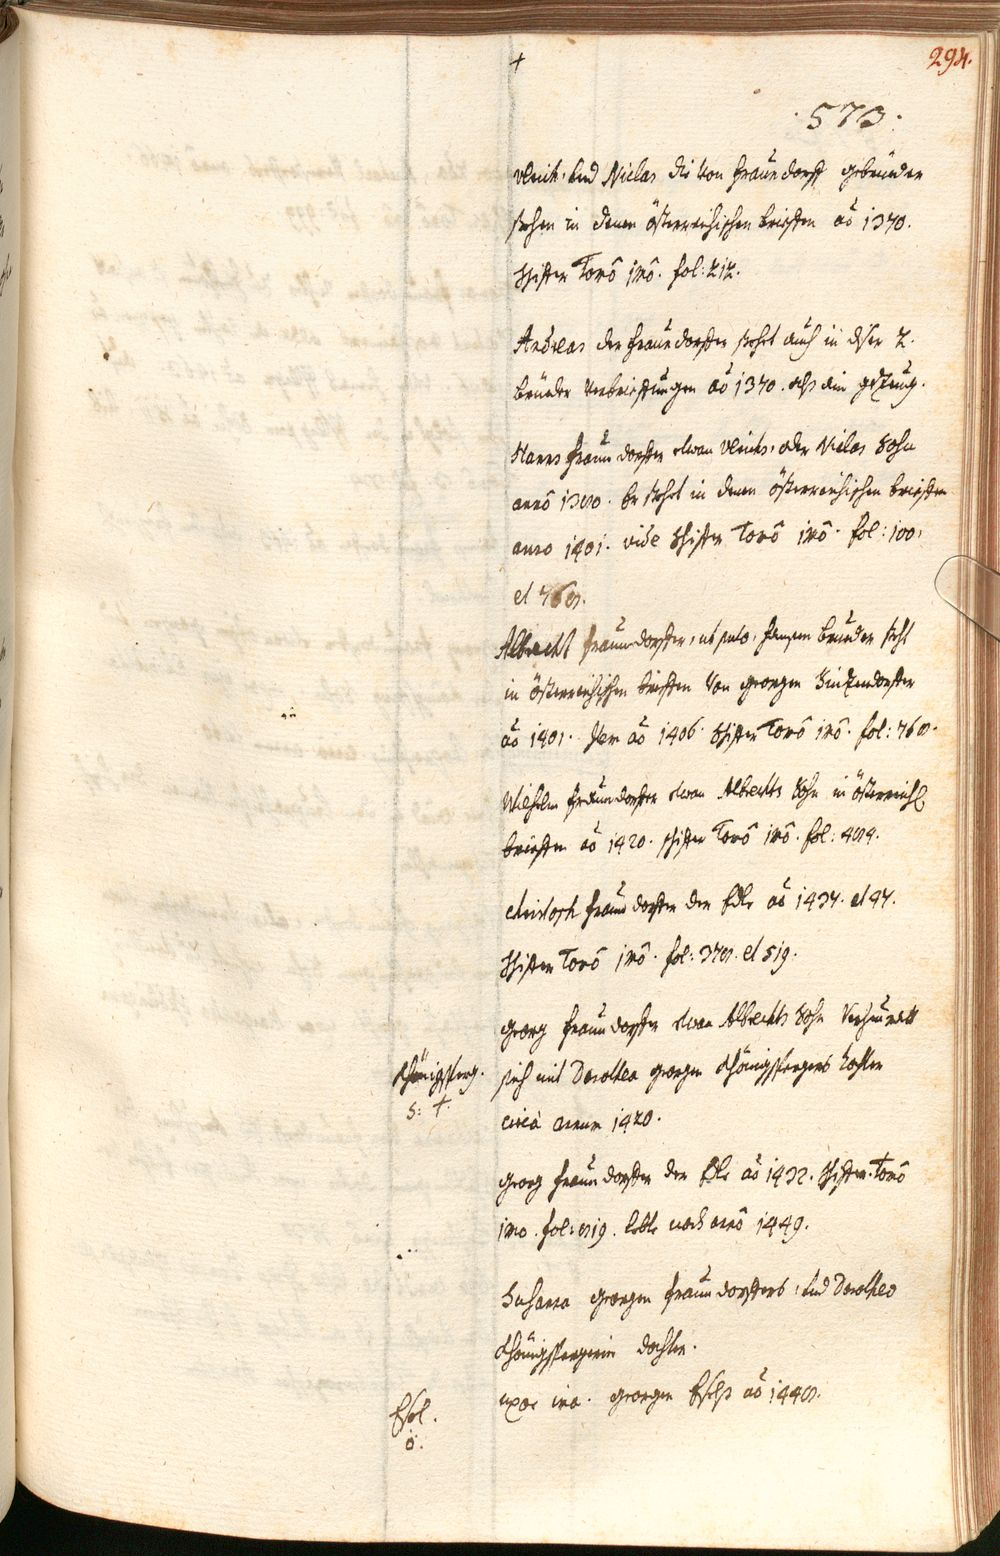 +
294.
573.
Ulrich, und Niclas die von Fraundorff gebrueder
stehen in denen Österreichischen brieffen aõ 1370.
Schiffer Tomô imô. fol: 212.
Andreas der Fraundorffer stehet auch in diser 2.
brüeder verbrieffungen aõ 1370. alß ein gezeug.
Hanns Fraundorffer etwan Ulrichs, oder Niclas Sohn
annô 1380. Er stehet in denen Österreichischen brieffen
anno 1401. vide Schiffer Tomô imô. fol: 100,
et 768.
Albrecht Fraundorffer, ut puto, Hansen brueder steht
in Österreichischen brieffen von Georgen Zinzendorffer
aõ 1401. Item aõ 1406. Schiffer Tomô imô. fol: 768.
Wilhelm Fraundorffer etwan Albrechts Sohn in Österreich:
brieffen aõ 1420. schiffer Tomô imô. fol: 484.
Christoph Fraundorffer der Edle aõ 1437. et 47.
Schiffer Tomô imô. fol: 378. et 519.
Georg Fraundorffer etwan Albrechts Sohn verheurath
Khönigsperg.
S: †.
sich mit Dorothea Georgen Khönigspergers tochter
circà annum 1420.
Georg Fraundorffer der Edle aõ 1432. Schiffer Tomô
imo. fol: 819. lebte noch annô 1449.
Susanna Georgen Fraundorffers, und Dorothea
Khönigspergerin dochter.
Esel.
ö.
uxor ima. Georgen Esels aõ 1448.